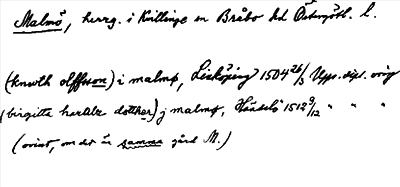 Malmö, herrg. i Kvillinge sn Bråbo hd Östergötl. l.
(knwth olffsson) i malmø, Linköping 1504 26/3 Upps. dipl. orig
(birgitta hartilz dotther) j malmø, 1512 9/12 " " "
(ovisst, om det är samma gård M.)